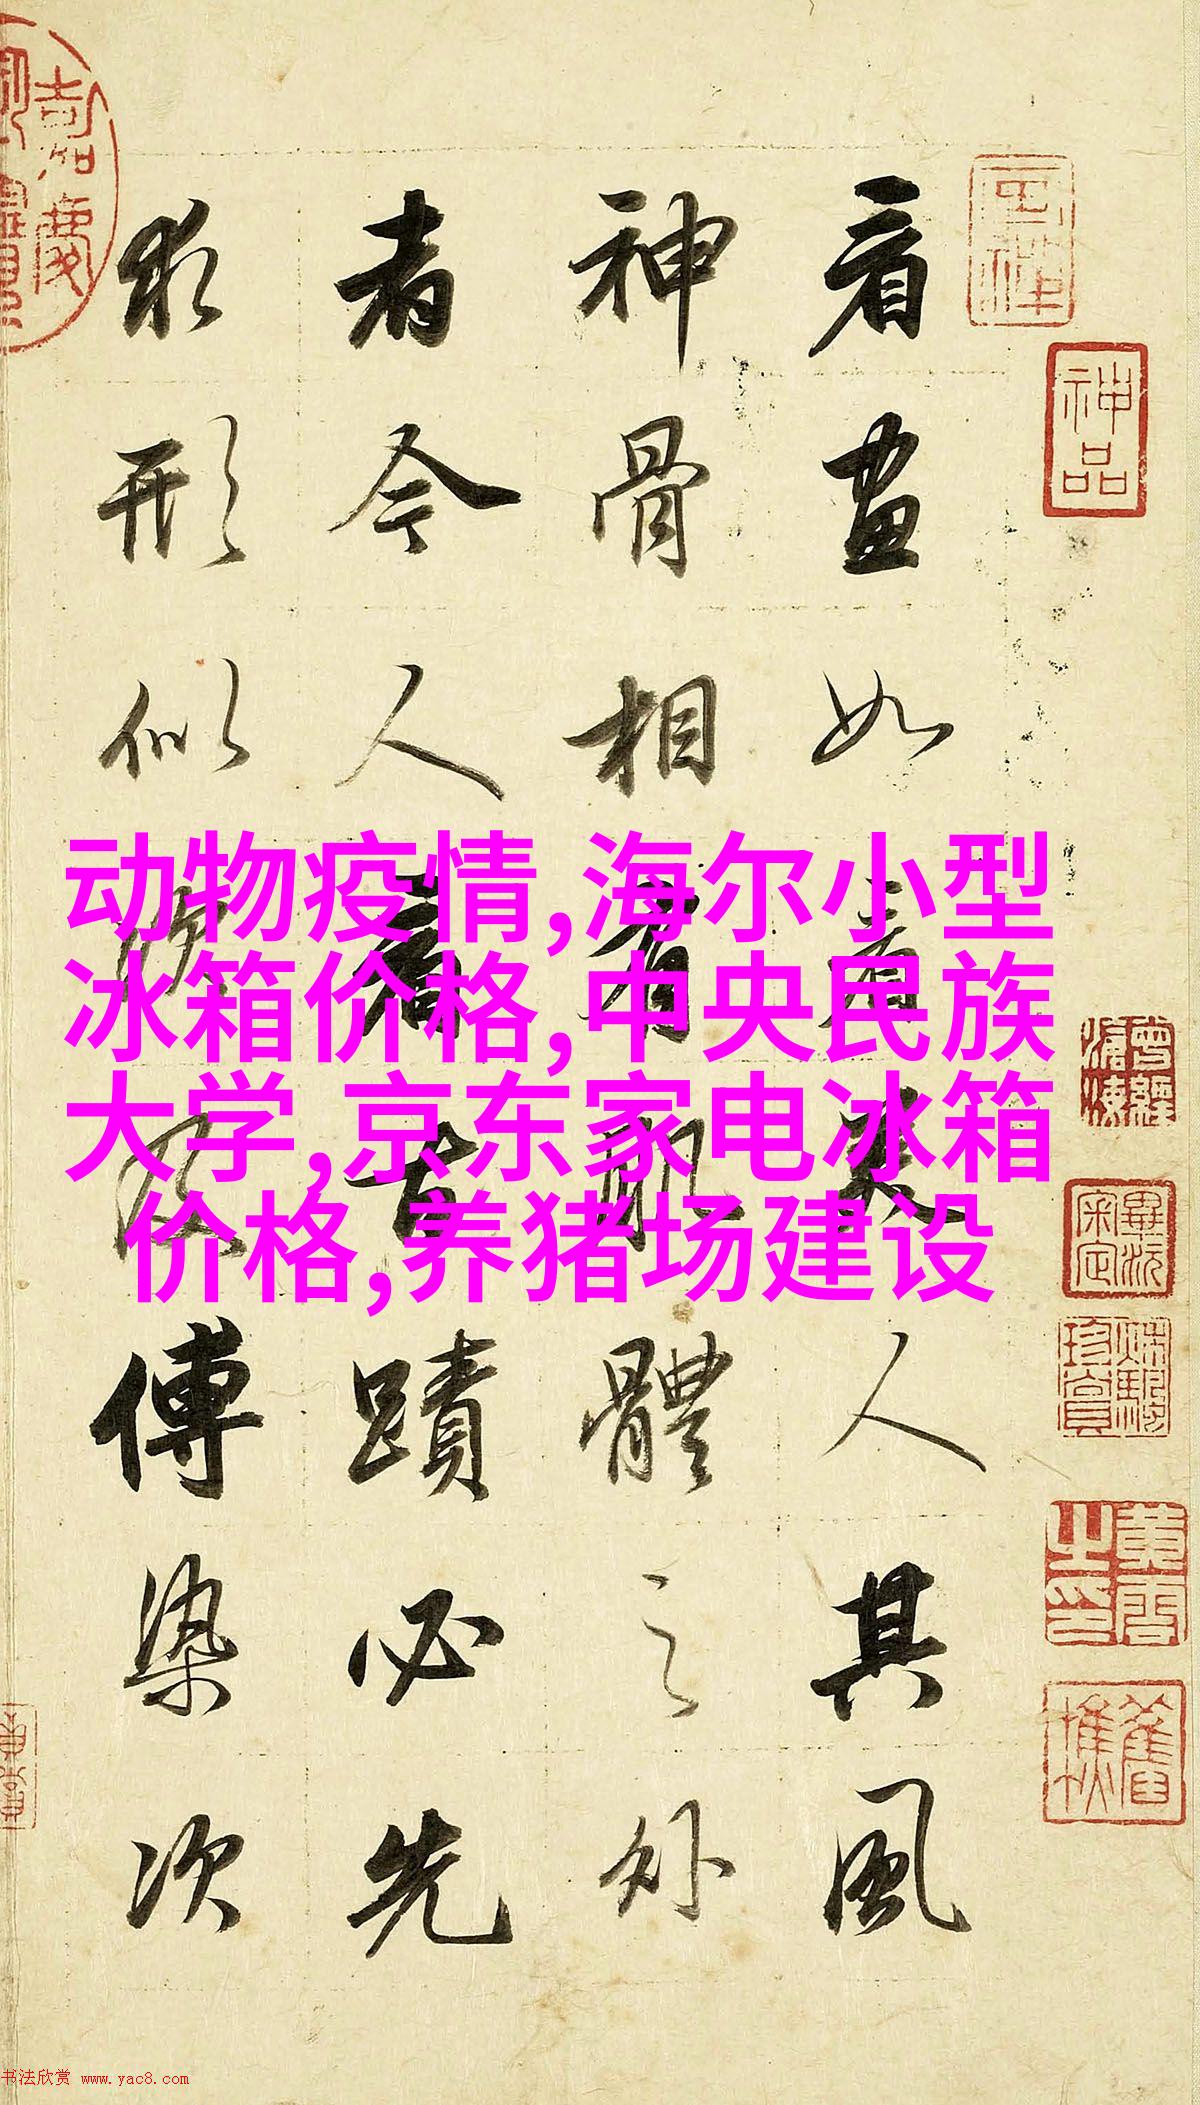 看畫如看美人其風
神骨相有肌體之外
者今人看古蹟必先
求形似次及傅染次
神品
嘉慶
动物疫情,海尔小型
冰箱价格,中央民族
大学,京东家电冰箱
价格,养猪场建设
书法欣赏 www.yac8.com